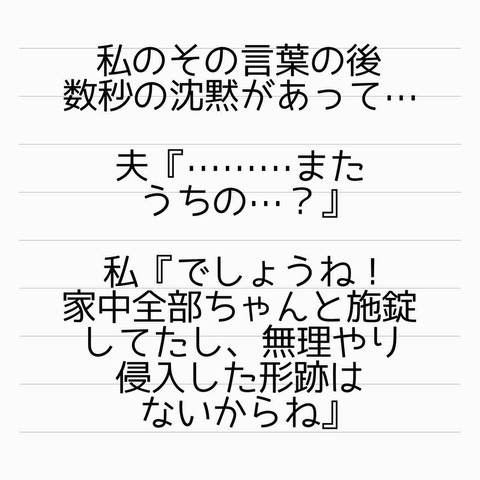 私のその言葉の後
数秒の沈黙があって…
夫『………また
うちの…？』
私『でしょうね！
家中全部ちゃんと施錠
してたし、無理やり
侵入した形跡は
ないからね』